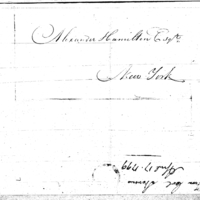 Alexander Hamilton Esqr.
New York
from
April 17. 1799